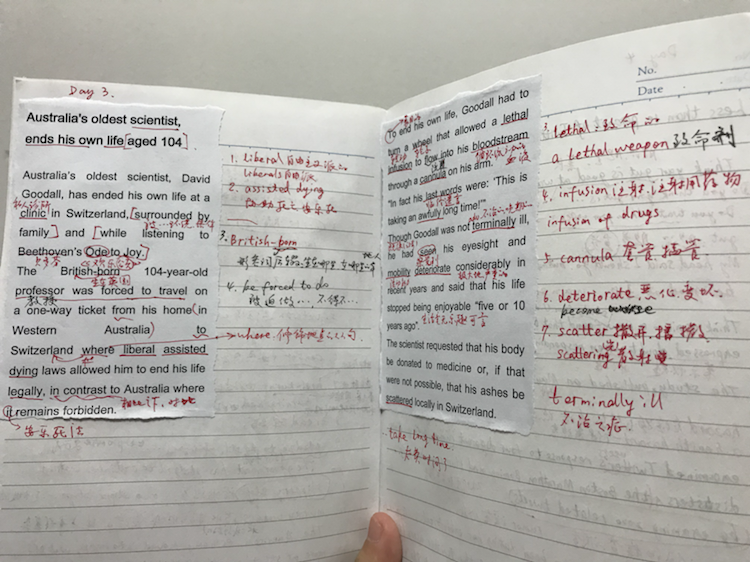 Day 3.
Australia's oldest scientist,
ends his own life [aged 104]
Australia's oldest scientist, David
Goodall, has ended his own life at a
私人诊所
clinic in Switzerland, [surrounded by
family] and [while listening to
Beethoven's Ode to Joy.]
贝多芬 欢乐颂
The British-born 104-year-old
生在英国
professor was forced to travel on
教授
a one-way ticket from his home (in
Western Australia) to
Switzerland where liberal assisted
dying laws allowed him to end his life
legally, in contrast to Australia where
it remains forbidden.
安乐死法
1. liberal 自由主义派的
liberals 自由派
2. assisted dying
协助死亡 安乐死
3. British-born
4. be forced to do
被迫做… 不得不…
where.
To end his own life, Goodall had to
turn a wheel that allowed a lethal
infusion to flow into his bloodstream
through a cannula on his arm.
"In fact his last words were: 'This is
临终遗言
taking an awfully long time!'"
Though Goodall was not terminally ill,
he had seen his eyesight and
mobility deteriorate considerably in
recent years and said that his life
stopped being enjoyable "five or 10
years ago".
The scientist requested that his body
be donated to medicine or, if that
were not possible, that his ashes be
scattered locally in Switzerland.
take long time
No.
Date
3. lethal: 致命的
a lethal weapon 致命剂
4. infusion 注射. 注射用药物
infusion of drugs
5. cannula 套管 插管
6. deteriorate 恶化 变坏
become
7. scatter 撒开. 播撒
scattering 散射
terminally ill
不治之症